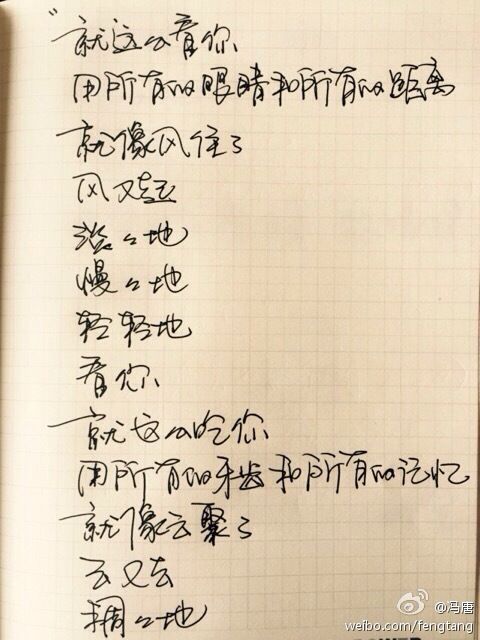 "就这么看你
用所有的眼睛和所有的距离
就像风住了
风又起
淡々地
慢々地
轻轻地
看你
就这么吃你
用所有的牙齿和所有的记忆
就像云聚了
云又去
稠々地
冯唐
weibo.com/fengtang